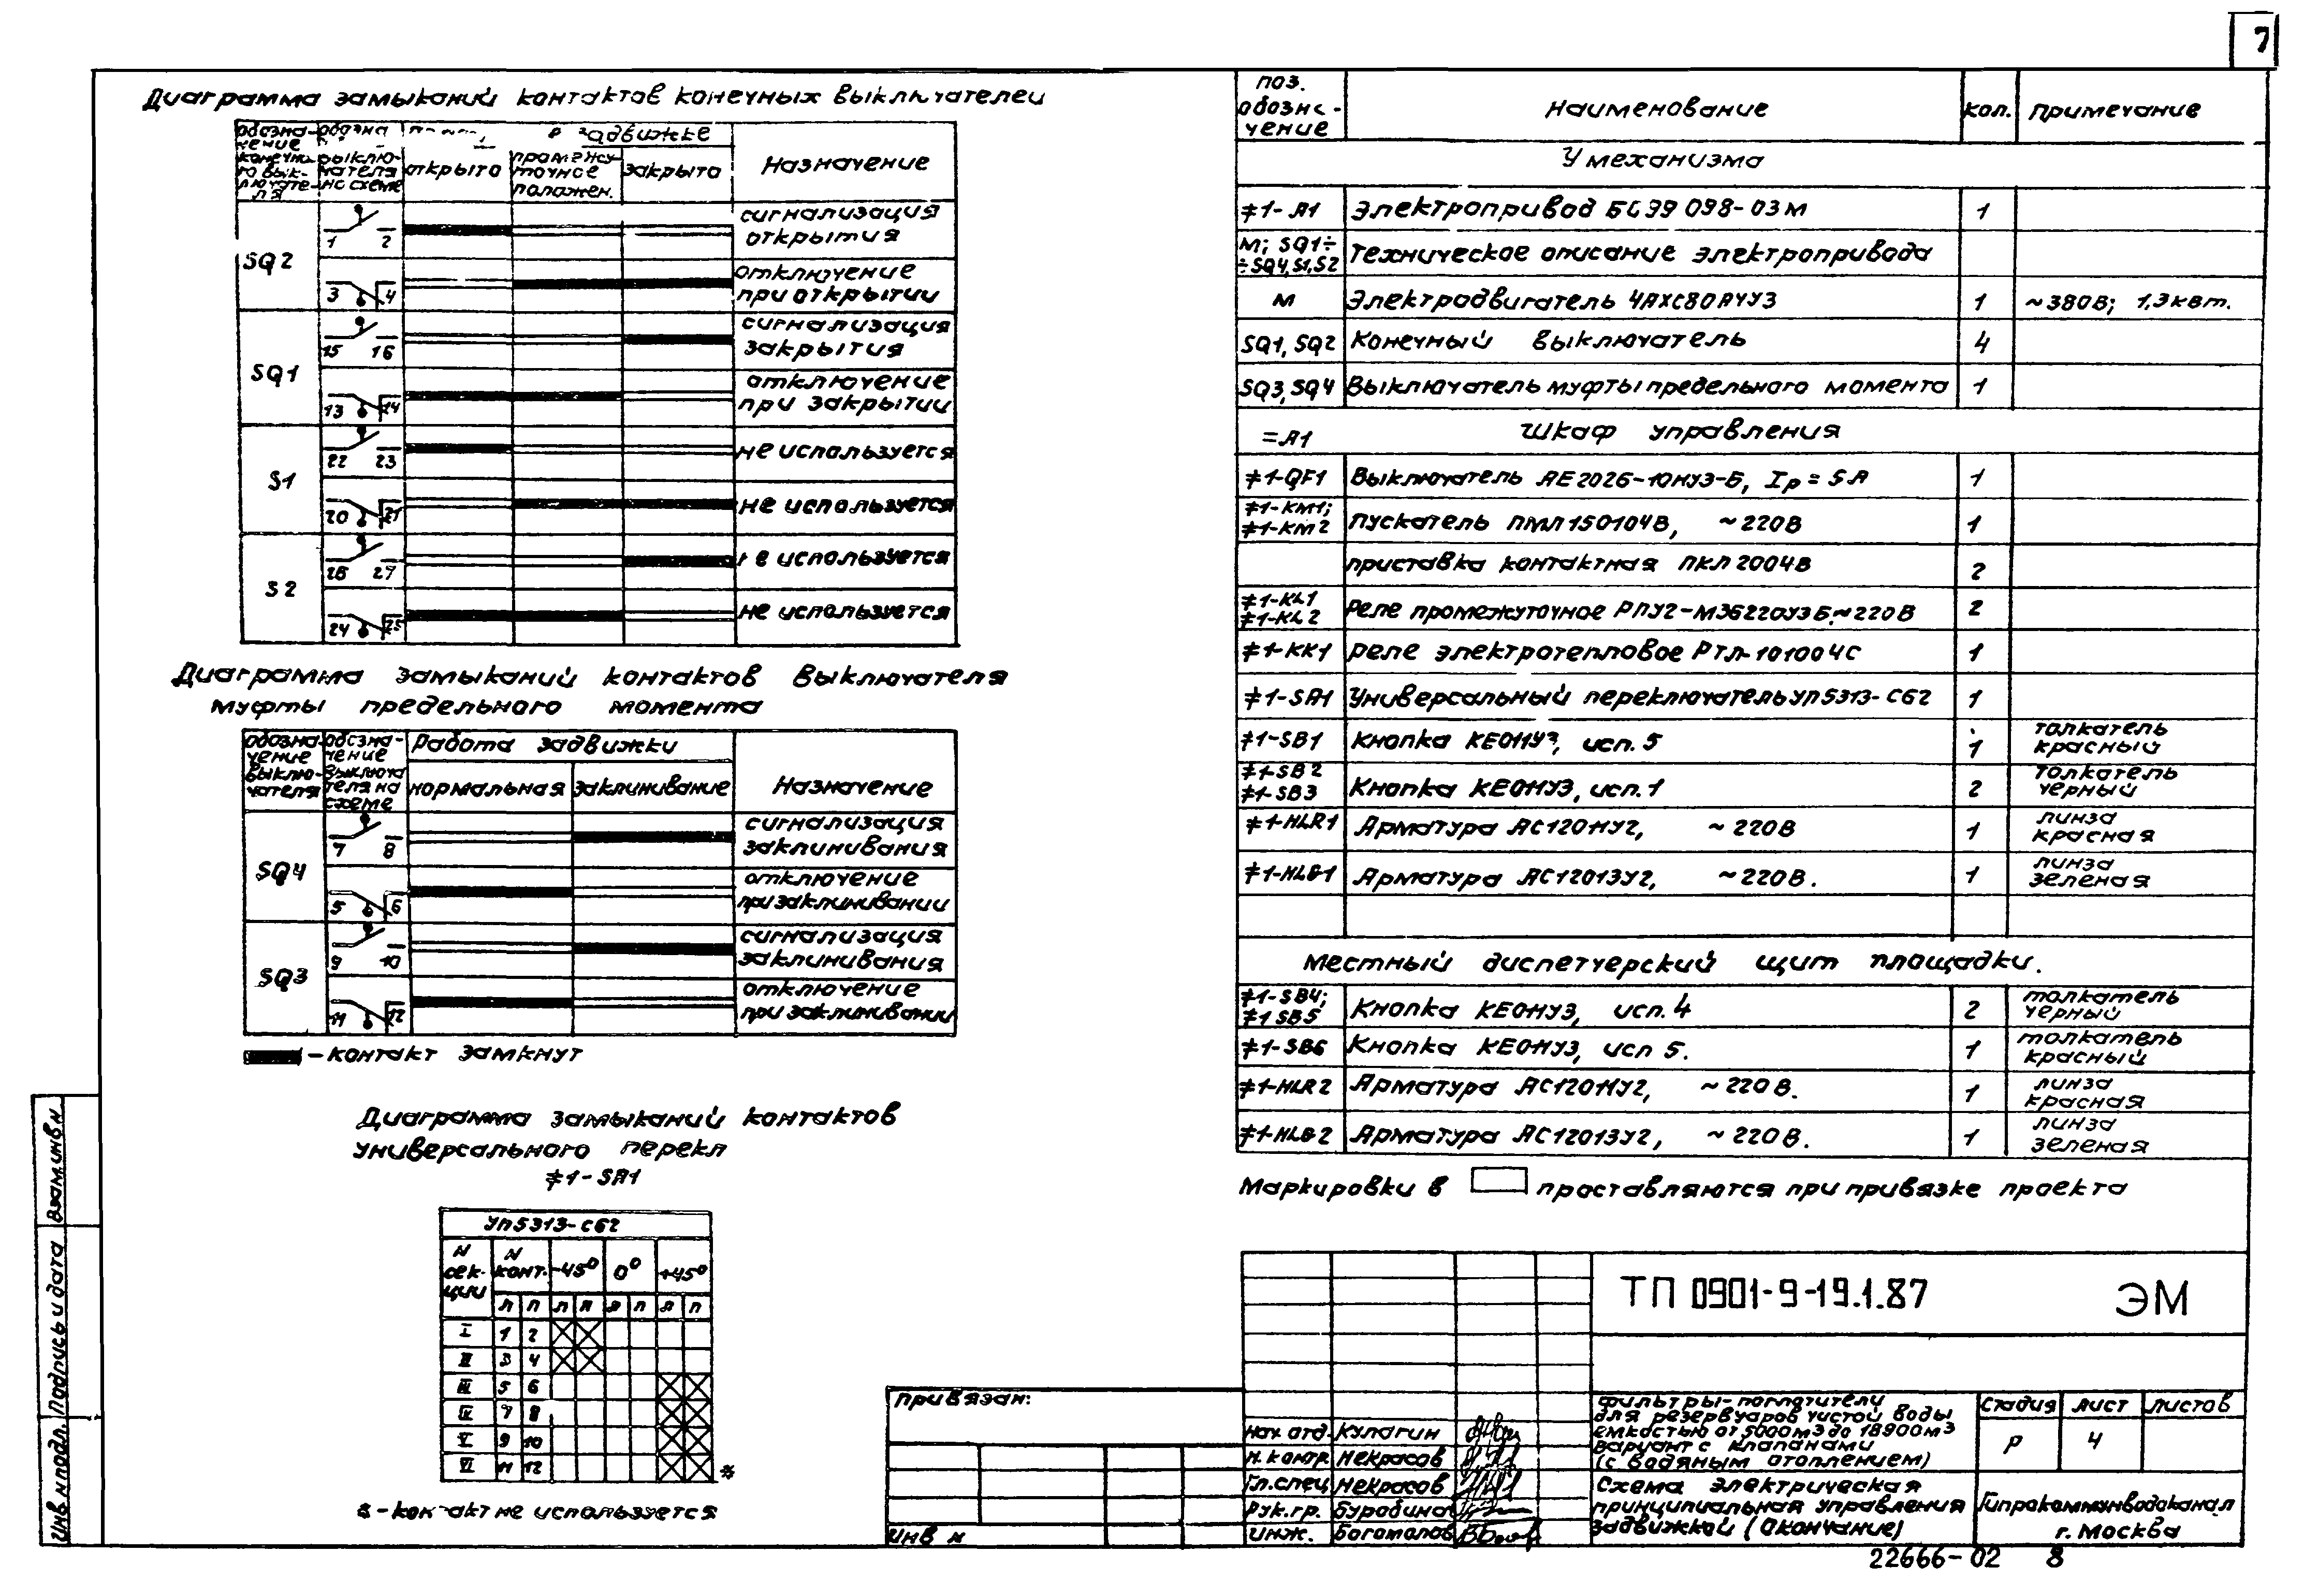 7
Диаграмма замыканий контактов конечных выключателей
обозна-
чение
конечно-
го вык-
лючате-
ля
обозна
выклю-
чателя
на схеме
задвижке
открыто
промежу-
точное
положен.
закрыто
Назначение
SQ2
1 2
сигнализация
открытия
3 4
отключение
при открытии
SQ1
15 16
сигнализация
закрытия
13 14
отключение
при закрытии
S1
22 23
не используется
20 21
не используется
S2
26 27
не используется
24 25
не используется
Диаграмма замыканий контактов выключателя
муфты предельного момента
обозна-
чение
выклю-
чателя
обозна-
чение
выключа
теля на
схеме
Работа задвижки
нормальная
заклинивание
Назначение
SQ4
7 8
сигнализация
заклинивания
5 6
отключение
при заклинивании
SQ3
9 10
сигнализация
заклинивания
11 12
отключение
при заклинивании
– контакт замкнут
Диаграмма замыканий контактов
универсального перекл
≠1-SA1
УП5313-С62
N сек-ции N конт. -45° 0° +45°
л п л п л п л п
I 1 2
II 3 4
III 5 6
IV 7 8
V 9 10
VI 11 12
*
- контакт не используется
поз. обозна-чение Наименование кол. Примечание
У механизма
≠1-А1 Электропривод БС99 098-03М 1
М; SQ1÷ ÷SQ4, S1, S2 Техническое описание электропривода
М Электродвигатель 4АХС80А4У3 1 ~380В; 1,3квт.
SQ1, SQ2 Конечный выключатель 4
SQ3, SQ4 Выключатель муфты предельного момента 1
=А1 Шкаф управления
≠1-QF1 Выключатель АЕ2026-10НУЗ-Б, Iр = 5А 1
≠1-КМ1; ≠1-КМ2 Пускатель ПМЛ150104В, ~220В 1
приставка контактная ПКЛ2004В 2
≠1-KL1 ≠1-KL2 Реле промежуточное РПУ2-М36220У3Б, ~220В 2
≠1-КК1 реле электротепловое РТЛ-101004С 1
≠1-SA1 Универсальный переключатель УП5313-С62 1
≠1-SB1 Кнопка КЕ011У3, исп. 5 1 толкатель красный
≠1-SB2 ≠1-SB3 Кнопка КЕ011У3, исп. 1 2 толкатель черный
≠1-HLR1 Арматура АС12011У2, ~220В 1 линза красная
≠1-HLG1 Арматура АС12013У2, ~220В. 1 линза зеленая
Местный диспетчерский щит площадки.
≠1-SB4; ≠1 SB5 Кнопка КЕ011У3, исп. 4 2 толкатель черный
≠1-SB6 Кнопка КЕ011У3, исп 5. 1 толкатель красный
≠1-HLR2 Арматура АС12011У2, ~220В. 1 линза красная
≠1-HLG2 Арматура АС12013У2, ~220В. 1 линза зеленая
Маркировки в проставляются при привязке проекта
ТП 0901-9-19.1.87 ЭМ
привязан:
инв н
нач. отд. Кулагин
н. контр. Некрасов
Гл. спец Некрасов
Рук. гр. Буробина
инж. Богомолов
фильтры-поглотители
для резервуаров чистой воды
емкостью от 5000м3 до 18900м3
вариант с клапанами
(с водяным отоплением)
стадия лист листов
Р 4
Схема электрическая
принципиальная управления
задвижкой (окончание)
Гипрокоммунводоканал
г. Москва
22666-02 8
Взам.инв н
Подпись и дата
инв н подл.